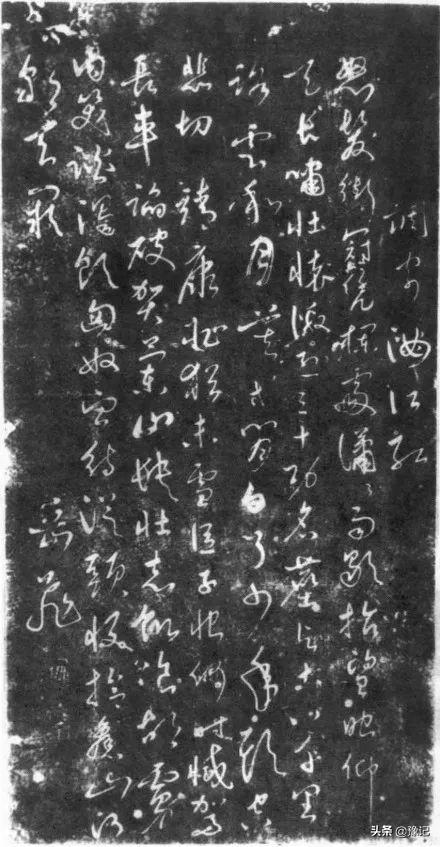 調寄滿江紅
怒髮衝冠憑欄處瀟瀟雨歇抬望眼仰
天長嘯壯懷激烈三十功名塵與土八千里
路雲和月莫等閒白了少年頭空
悲切 靖康恥猶未雪臣子恨何時滅駕
長車踏破賀蘭山缺壯志飢餐胡虜
肉笑談渴飲匈奴血待從頭收拾舊山河
朝天闕
岳飛
头条 @豫记